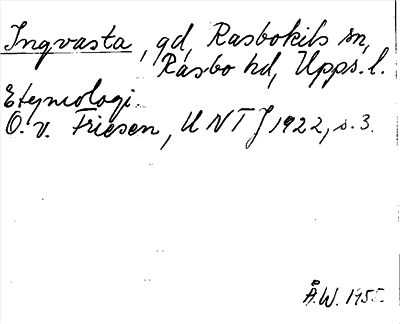 Ingvasta, gd, Rasbokils sn,
Rasbo hd, Upps. l.
Etymologi.
O. v. Friesen, UNT J 1922, s. 3.
Å.W. 1955.